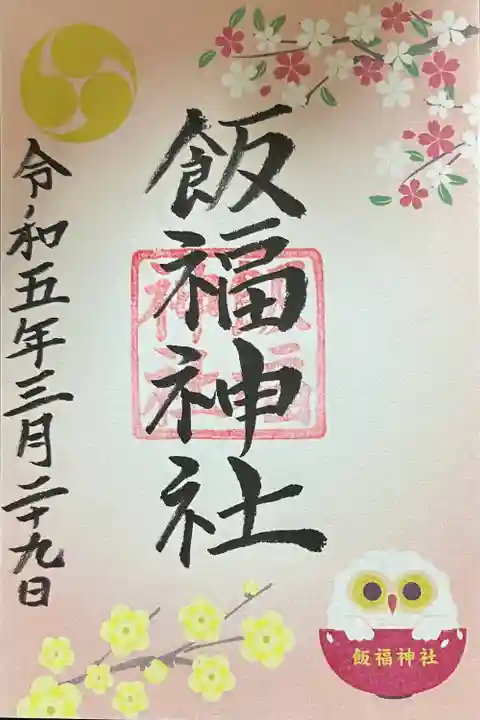 飯福神社
飯福神社
令和五年三月二十九日
飯福神社